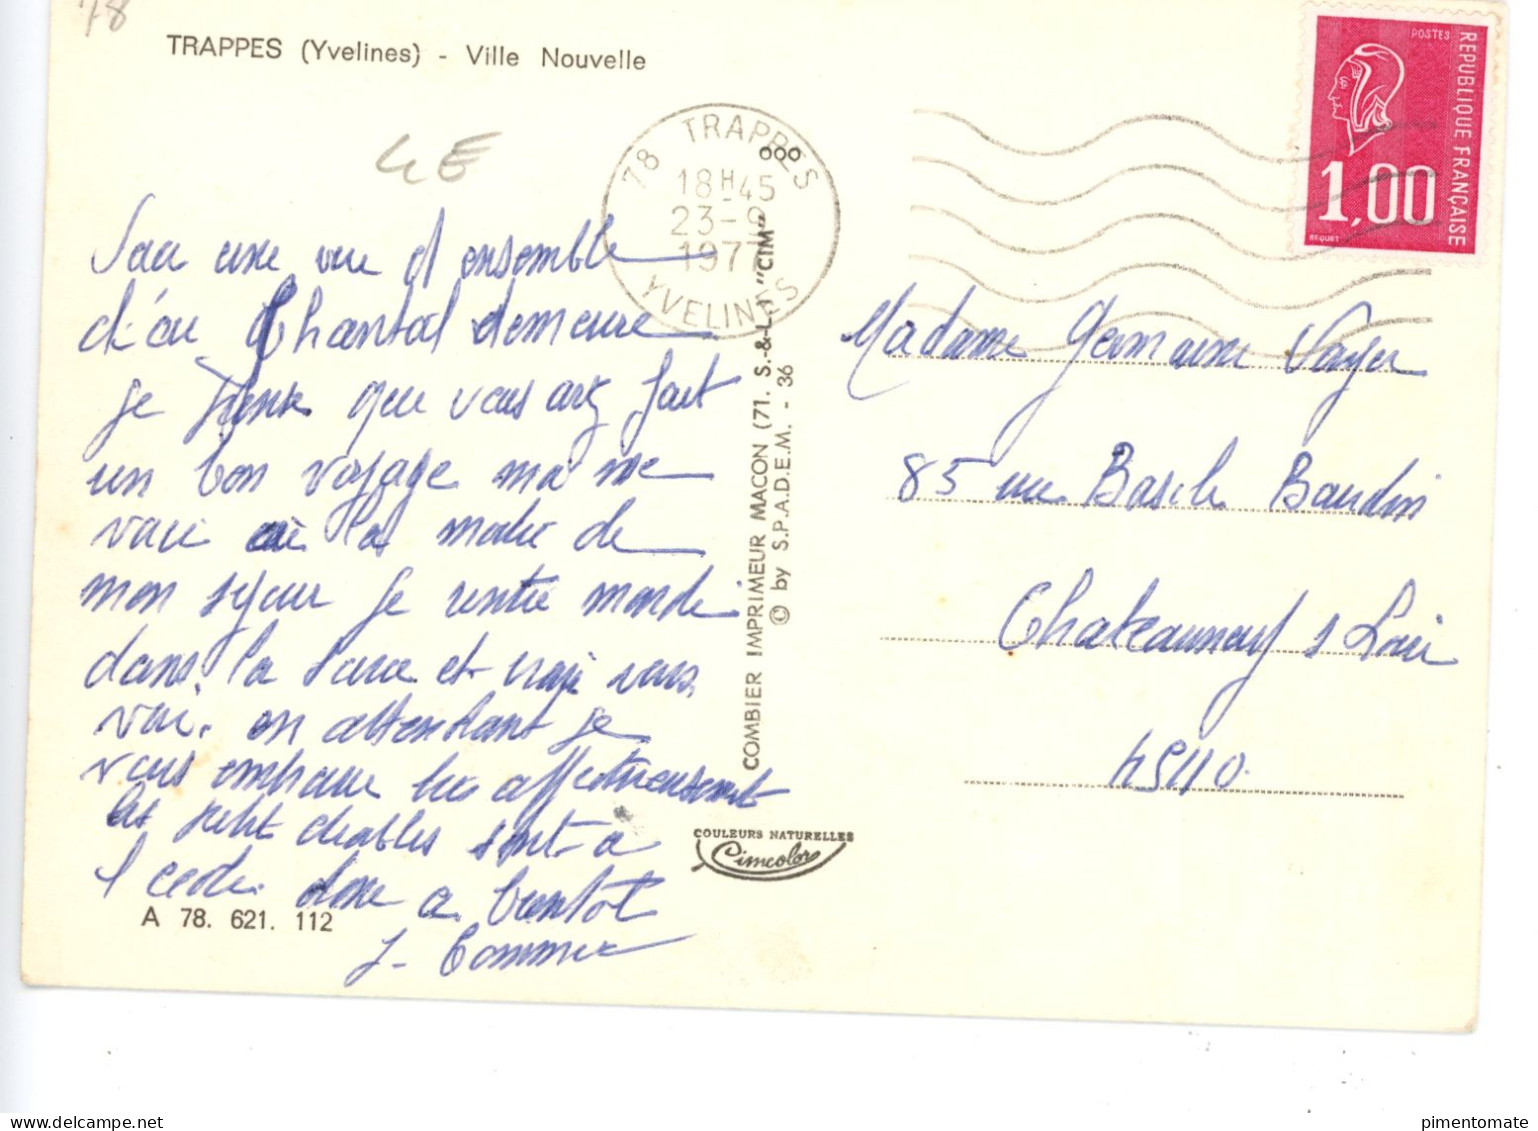 78
TRAPPES (Yvelines) - Ville Nouvelle
4E
78 TRAPPES
18H45
23-9
1977
YVELINES
POSTES
REPUBLIQUE FRANÇAISE
1,00
BEQUET
une vue d ensemble
d'ou Chantal demeure
je pense que vous avez fait
un bon voyage me
voici la de
mon sejour je rentre mardi
dans la et
voir. en attendant je
vous embrasse affectueusement
les petit diables sont a
l ecole donc a bientot
J. Commer
Madame Germaine
85 rue Basile Baudin
Chateauneuf s Loire
45110
COMBIER IMPRIMEUR MACON (71. S.-&-L.) "CIM"
© by S.P.A.D.E.M. - 36
COULEURS NATURELLES
Cimcolor
A 78. 621. 112
pimentomate